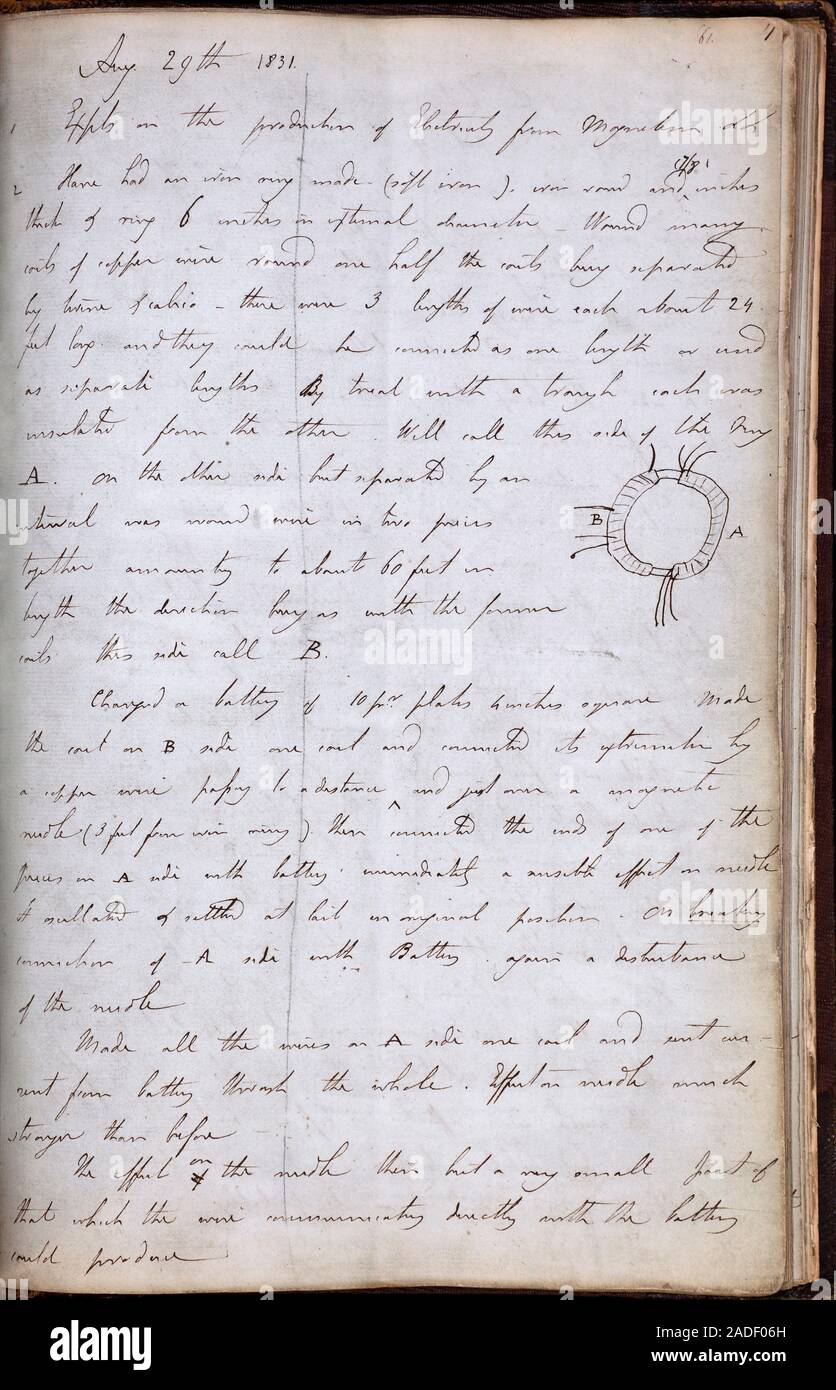 61. 1
Aug. 29th 1831.
1 Expts on the production of Electricity from Magnetism &c &c
7/8
2 Have had an iron ring made (soft iron), iron round and inches
thick & ring 6 inches in external diameter. Wound many
coils of copper wire round one half the coils being separated
by twine & calico - there were 3 lengths of wire each about 24
feet long and they could be connected as one length or used
as separate lengths By trial with a trough each was
insulated from the other. Will call this side of the ring
A. on the other side but separated by an
interval was wound wire in two pieces
together amounting to about 60 feet in
length the direction being as with the former
coils this side call B.
B A
Charged a battery of 10 pr. plates 4 inches square Made
the coil on B side one coil and connected its extremities by
a copper wire passing to a distance and just over a magnetic
needle (3 feet from iron ring). then connected the ends of one of the
pieces on A side with battery. immediately a sensible effect on needle
It oscillated & settled at last in original position. On breaking
connection of A side with Battery again a disturbance
of the needle
Made all the wires on A side one coil and sent cur-
rent from battery through the whole. Effect on needle much
stronger than before
The effect on the needle then but a very small part of
that which the wire communicating directly with the battery
could produce
alamy
alamy
Image ID: 2ADF06H
www.alamy.com